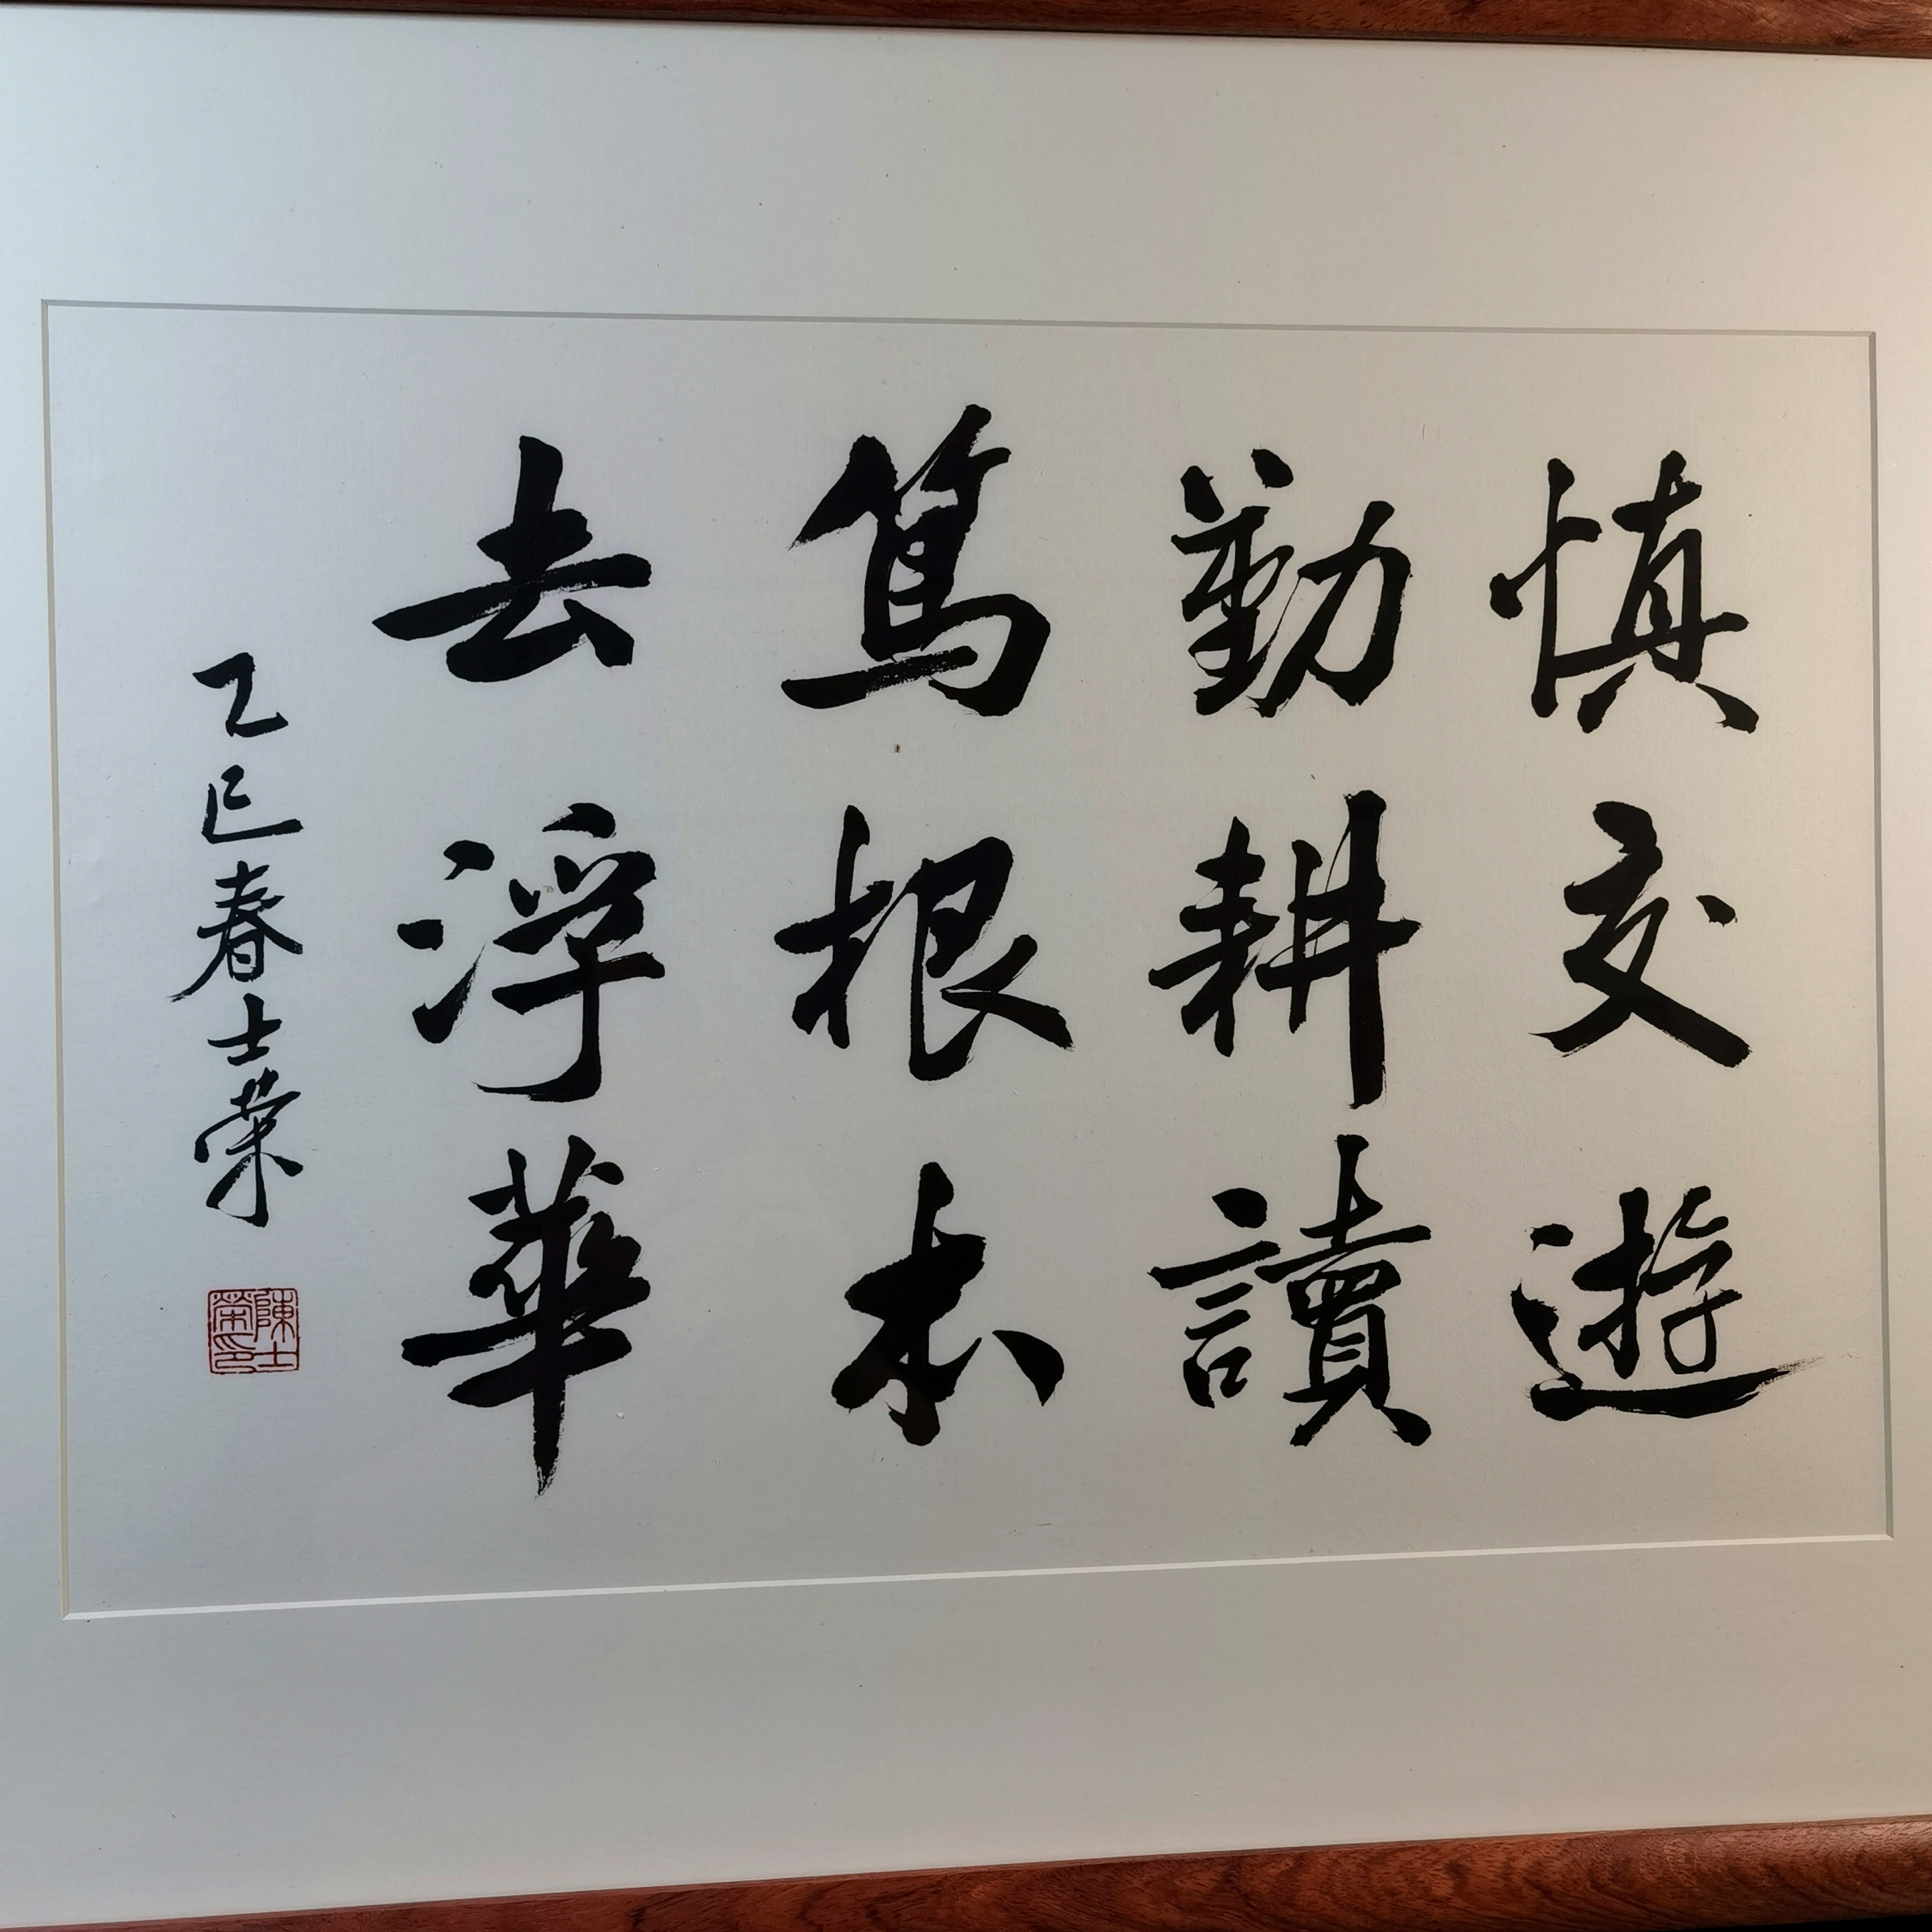 慎交遊
勤耕讀
篤根本
去浮華
乙巳春士榮
陳士榮印